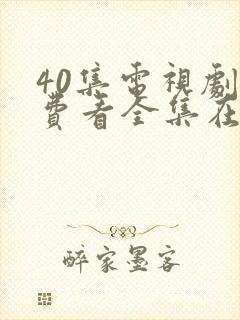 40集電視劇
費看全集在
醉家墨客